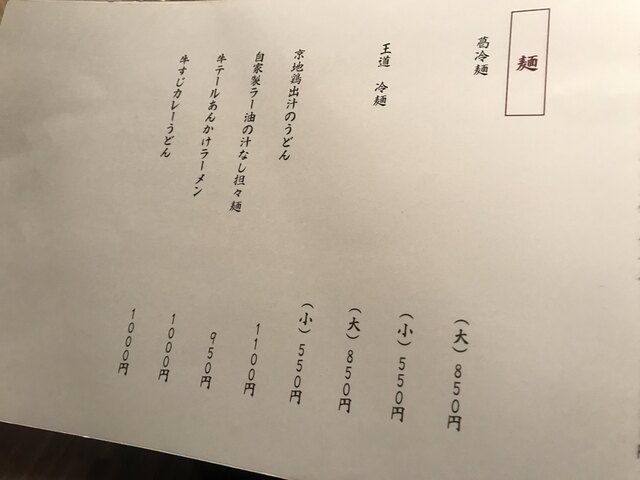 麺
葛冷麺
(大) 850円
(小) 550円
王道 冷麺
(大) 850円
(小) 550円
京地鶏出汁のうどん
1100円
自家製ラー油の汁なし担々麺
950円
牛テールあんかけラーメン
1000円
牛すじカレーうどん
1000円